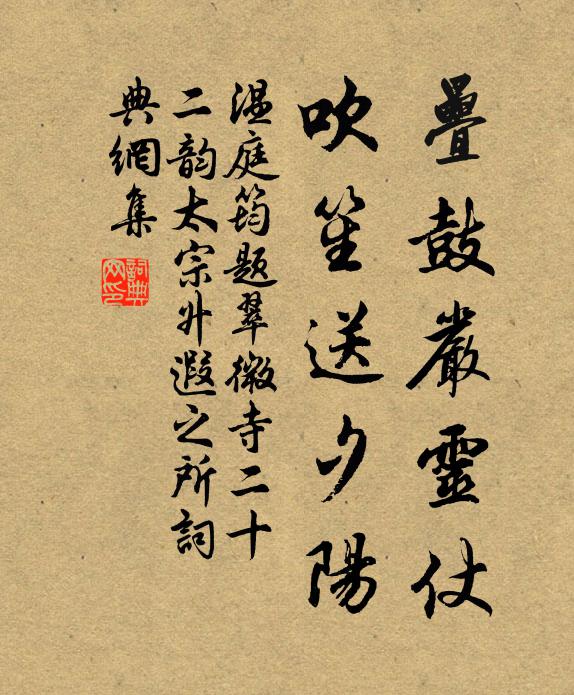 疊鼓嚴靈仗
吹笙送夕陽
溫庭筠題翠微寺二十
二韵太宗升遐之所詞
典網集
詞典網印